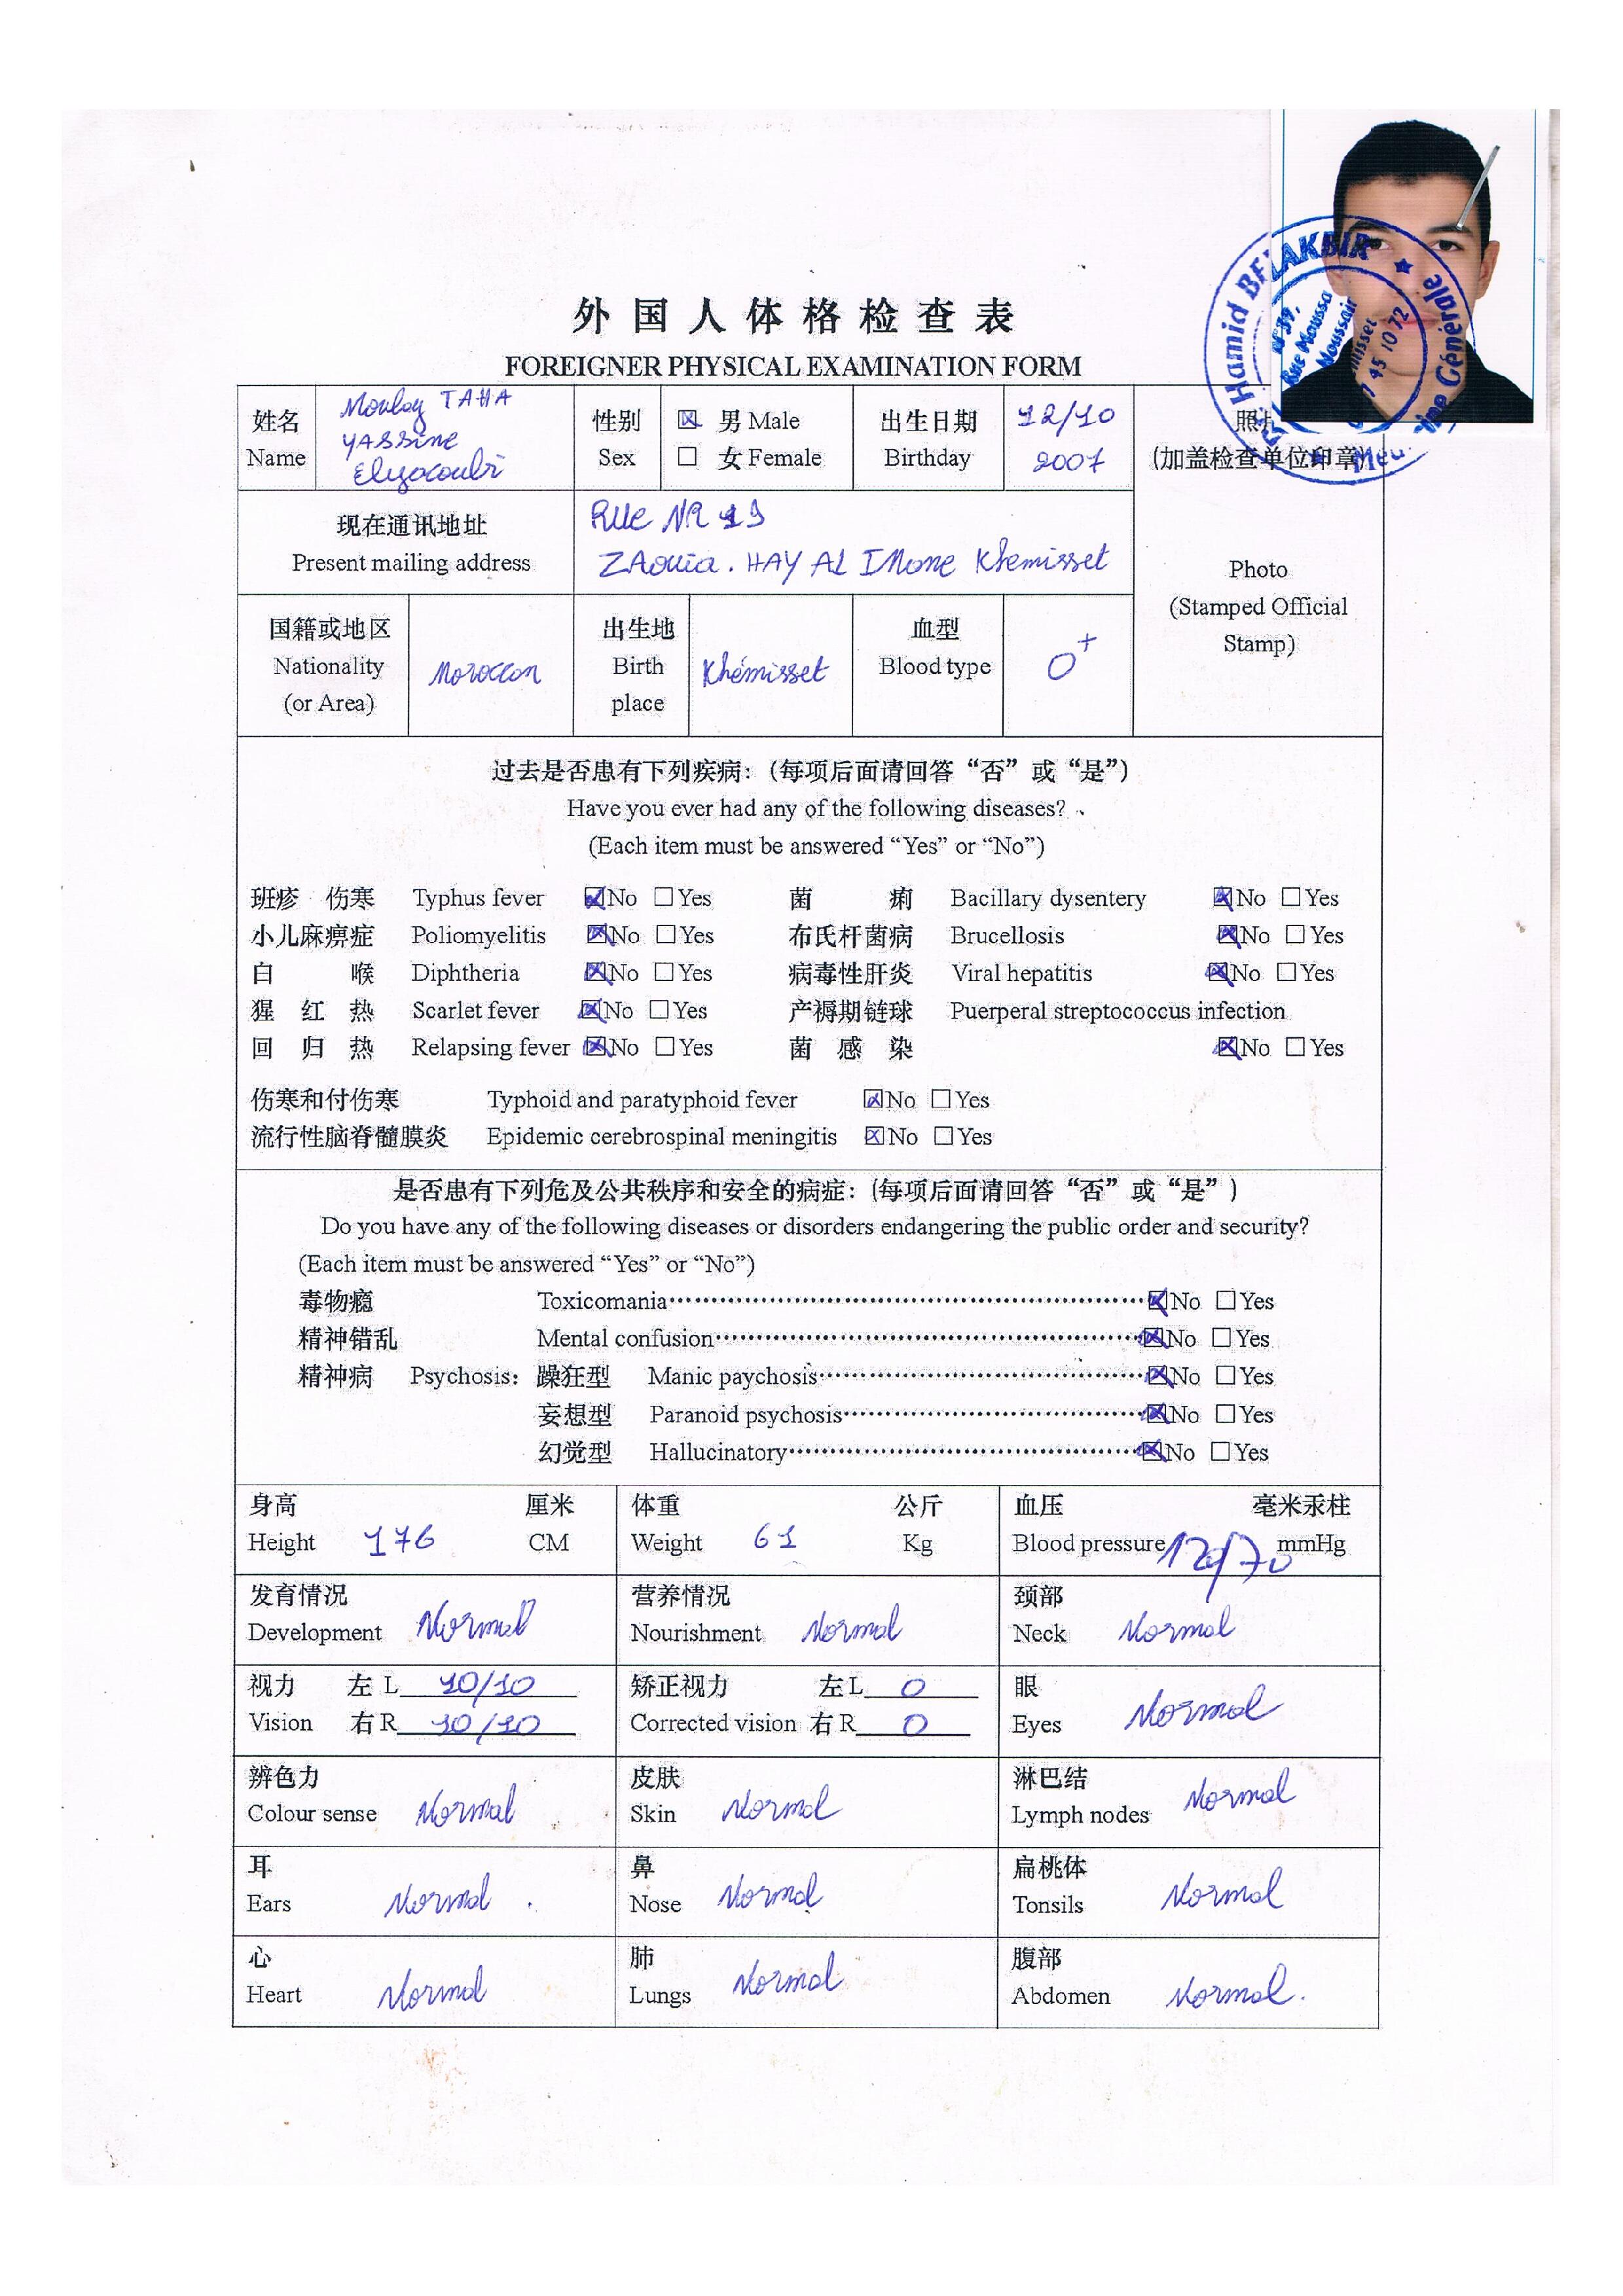 外国人体格检查表
FOREIGNER PHYSICAL EXAMINATION FORM
Hamid
N°39,
Rue Moussa
Noussair
45 10 72
Générale
姓名
Name
Moulay TAHA
YASSine
Elyacoubi
性别
Sex
男 Male
女 Female
出生日期
Birthday
12/10
2007
(加盖检查单位印章)
Photo
(Stamped Official
Stamp)
现在通讯地址
Present mailing address
RUe NR 19
ZAouia. HAY AL IMane Khemisset
国籍或地区
Nationality
(or Area)
Moroccan
出生地
Birth
place
Khémisset
血型
Blood type
O+
过去是否患有下列疾病:(每项后面请回答“否”或“是”)
Have you ever had any of the following diseases?
(Each item must be answered “Yes” or “No”)
班疹 伤寒 Typhus fever No Yes 菌 痢 Bacillary dysentery No Yes
小儿麻痹症 Poliomyelitis No Yes 布氏杆菌病 Brucellosis No Yes
白 喉 Diphtheria No Yes 病毒性肝炎 Viral hepatitis No Yes
猩 红 热 Scarlet fever No Yes 产褥期链球 Puerperal streptococcus infection
回 归 热 Relapsing fever No Yes 菌 感 染 No Yes
伤寒和付伤寒 Typhoid and paratyphoid fever No Yes
流行性脑脊髓膜炎 Epidemic cerebrospinal meningitis No Yes
是否患有下列危及公共秩序和安全的病症:(每项后面请回答“否”或“是”)
Do you have any of the following diseases or disorders endangering the public order and security?
(Each item must be answered “Yes” or “No”)
毒物瘾 Toxicomania No Yes
精神错乱 Mental confusion No Yes
精神病 Psychosis: 躁狂型 Manic paychosis No Yes
妄想型 Paranoid psychosis No Yes
幻觉型 Hallucinatory No Yes
身高 厘米 体重 公斤 血压 毫米汞柱
Height 176 CM Weight 61 Kg Blood pressure 120/70 mmHg
发育情况 营养情况 颈部
Development Normal Nourishment Normal Neck Normal
视力 左 L 10/10 矫正视力 左 L 0 眼
Vision 右 R 10/10 Corrected vision 右 R 0 Eyes Normal
辨色力 皮肤 淋巴结
Colour sense Normal Skin Normal Lymph nodes Normal
耳 鼻 扁桃体
Ears Normal Nose Normal Tonsils Normal
心 肺 腹部
Heart Normal Lungs Normal Abdomen Normal.